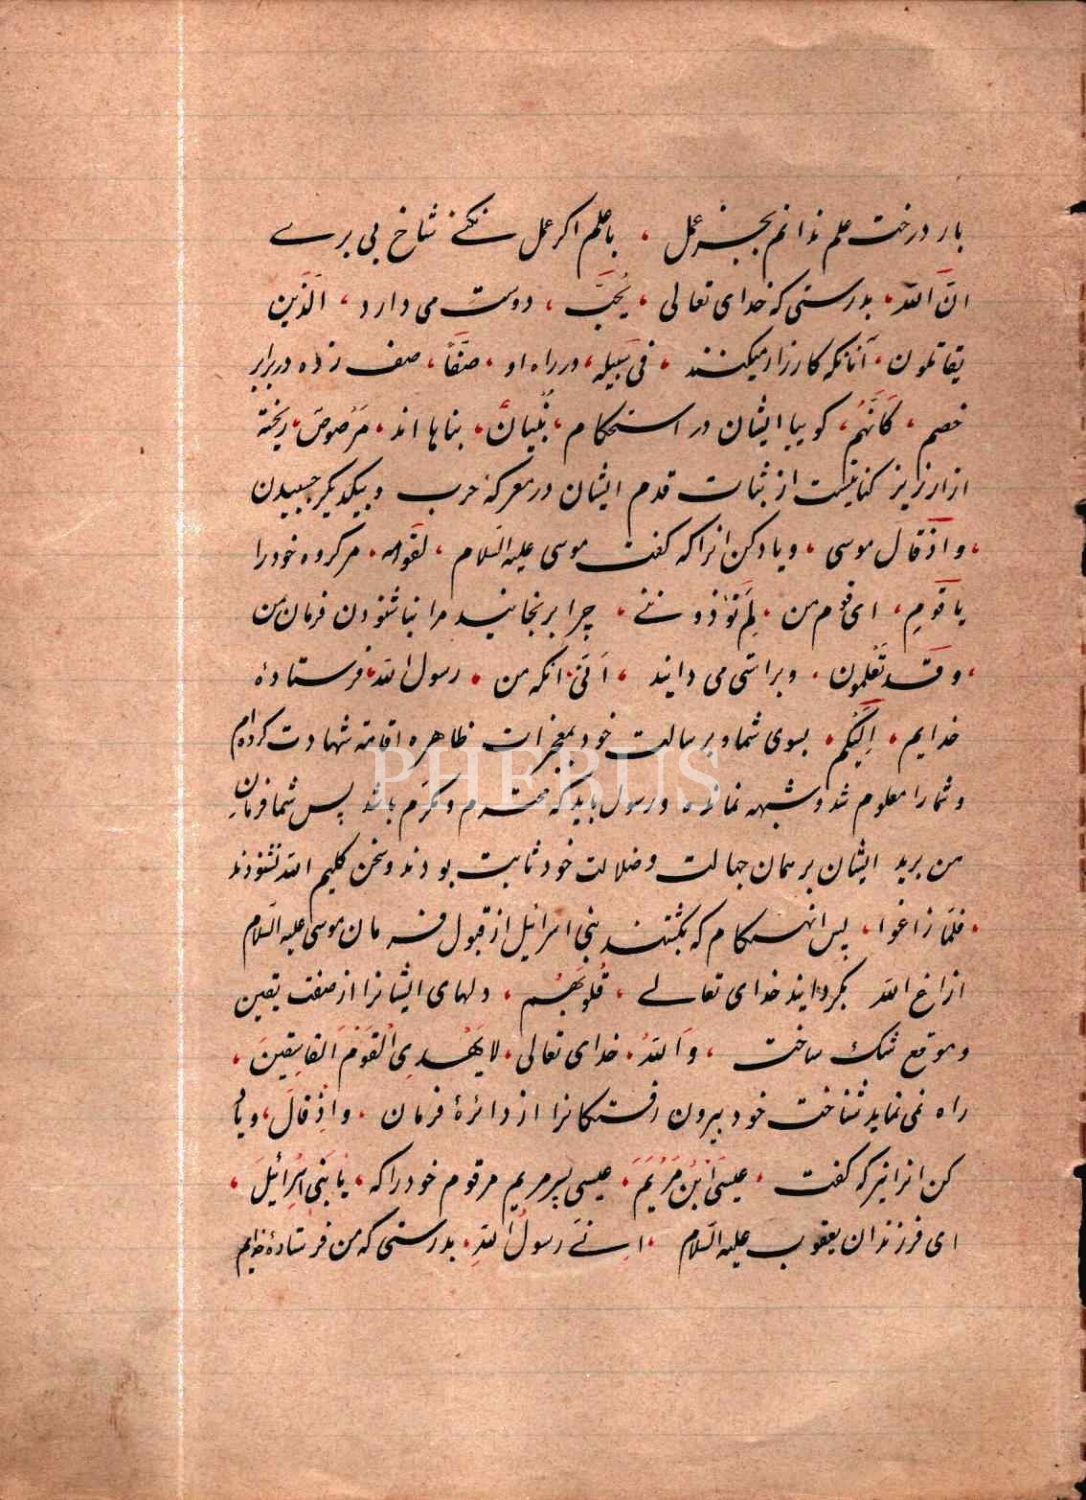 بار درخت علم ندانم بجز عمل ۰ با علم اگر عمل نکنی شاخ بی بری
انّ اللّه ۰ بدرستی که خدای تعالی ۰ یُحِبُّ ، دوست می دارد ، الّذین
یقاتلون ۰ آنانکه کارزار میکنند ۰ فی سَبیلِه ، در راه او ۰ صفّاً ، صف زده در برابر
خصم ، کَاَنَّهُم ، کوییا ایشان در استحکام ، بُنیانٌ ۰ بناها اند ۰ مَرصُوصٌ ، ریخته
از ارزیز کنایتست از ثبات قدم ایشان در معرکهٔ حرب و بیکدیگر چسبیدن
، و اذ قال موسی ، و یاد کن انرا که گفت موسی علیه السّلام ، لقومه ۰ مر گروه خود را
یا قَومِ ، ای قوم من ۰ لِمَ تؤذوننی ۰ چرا برنجانید مرا بناشنودن فرمان من
، و قد تَعلَمون ۰ و براستی می دانید ، اَنّی ۰ انکه من ۰ رسول اللّه ، فرستادهٔ
خدایم ۰ اِلَیکُم ۰ بسوی شما و برسالت خود بمعجزات ظاهره اقامه شهادت کرده‌ام
و شما را معلوم شد و شبهه نمانده و رسول باید که محترم و مکرّم باشد پس شما فرمان
من برید ایشان بر همان جهالت و ضلالت خود ثابت بودند و سخن کلیم اللّه نشنودند
۰ فلمّا زاغوا ، پس انهنکام که بگشتند بنی اسرائیل از قبول فرمان موسی علیه السّلام
ازاغ اللّه بگردانید خدای تعالی ، قُلوبَهُم ، دلهای ایشانرا از صفت یقین
و موقع شک ساخت ، و اللّهُ ۰ خدای تعالی ۰ لا یَهْدِی القَومَ الفاسِقینَ ،
راه نمی نماید شناخت خود بیرون رفتگانرا از دائرهٔ فرمان ۰ و اذ قالَ ، و یاد
کن انرا نیز که گفت ۰ عیسَی ابنُ مَریَمَ ۰ عیسی پسر مریم مر قوم خود را که ، یا بَنی اسرائیلَ ،
ای فرزندان یعقوب علیه السّلام ۰ اِنّی رسولُ اللّهِ ۰ بدرستی که من فرستادهٔ خدایم
PHEBUS